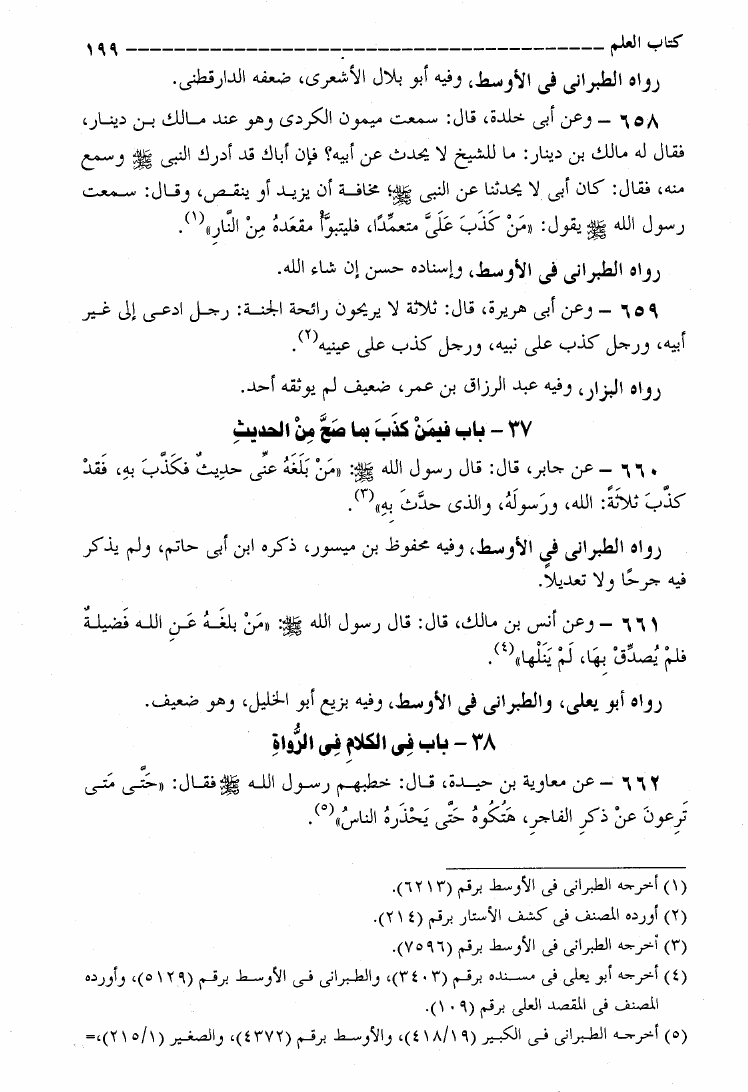 كتاب العلم ــــــــــــــــــــــــــــــــــــــــــــــــــــــــــــ ١٩٩
رواه الطبرانى فى الأوسط، وفيه أبو بلال الأشعرى، ضعفه الدارقطنى.
٦٥٨ – وعن أبى خلدة، قال: سمعت ميمون الكردى وهو عند مالك بن دينار،
فقال له مالك بن دينار: ما للشيخ لا يحدث عن أبيه؟ فإن أباك قد أدرك النبى ﷺ وسمع
منه، فقال: كان أبى لا يحدثنا عن النبى ﷺ؛ مخافة أن يزيد أو ينقص، وقال: سمعت
رسول الله ﷺ يقول: «مَنْ كَذَبَ عَلَىَّ متعمِّدًا، فليتبوَّأْ مقعَدهُ مِنْ النَّارِ»(١).
رواه الطبرانى فى الأوسط، وإسناده حسن إن شاء الله.
٦٥٩ – وعن أبى هريرة، قال: ثلاثة لا يريحون رائحة الجنة: رجل ادعى إلى غير
أبيه، ورجل كذب على نبيه، ورجل كذب على عينيه(٢).
رواه البزار، وفيه عبد الرزاق بن عمر، ضعيف لم يوثقه أحد.
٣٧ – باب فيمَنْ كذَبَ بما صَحَّ مِنْ الحديثِ
٦٦٠ – عن جابر، قال: قال رسول الله ﷺ: «مَنْ بَلَغَهُ عنِّى حديِثٌ فكَذَّبَ بهِ، فَقَدْ
كذَّبَ ثلاثَةً: الله، ورَسولَهُ، والذى حدَّثَ بِهِ»(٣).
رواه الطبرانى فى الأوسط، وفيه محفوظ بن ميسور، ذكره ابن أبى حاتم، ولم يذكر
فيه جرحًا ولا تعديلاً.
٦٦١ – وعن أنس بن مالك، قال: قال رسول الله ﷺ: «مَنْ بلغَهُ عَنِ الله فَضيلةٌ
فلمْ يُصدِّقْ بِهَا، لَمْ يَنَلْها»(٤).
رواه أبو يعلى، والطبرانى فى الأوسط، وفيه بزيع أبو الخليل، وهو ضعيف.
٣٨ – باب فِى الكلامِ فِى الرُّواةِ
٦٦٢ – عن معاوية بن حيدة، قال: خطبهم رسول الله ﷺ فقال: «حَتَّى مَتى
تَرِعونَ عنْ ذكرِ الفاجرِ، هَتُكوهُ حَتَّى يَحْذَرهُ الناسُ»(٥).
(١) أخرجه الطبرانى فى الأوسط برقم (٦٢١٣).
(٢) أورده المصنف فى كشف الأستار برقم (٢١٤).
(٣) أخرجه الطبرانى فى الأوسط برقم (٧٥٩٦).
(٤) أخرجه أبو يعلى فى مسنده برقم (٣٤٠٣)، والطبرانى فى الأوسط برقم (٥١٢٩)، وأورده
المصنف فى المقصد العلى برقم (١٠٩).
(٥) أخرجه الطبرانى فى الكبير (٤١٨/١٩)، والأوسط برقم (٤٣٧٢)، والصغير (٢١٥/١)،=